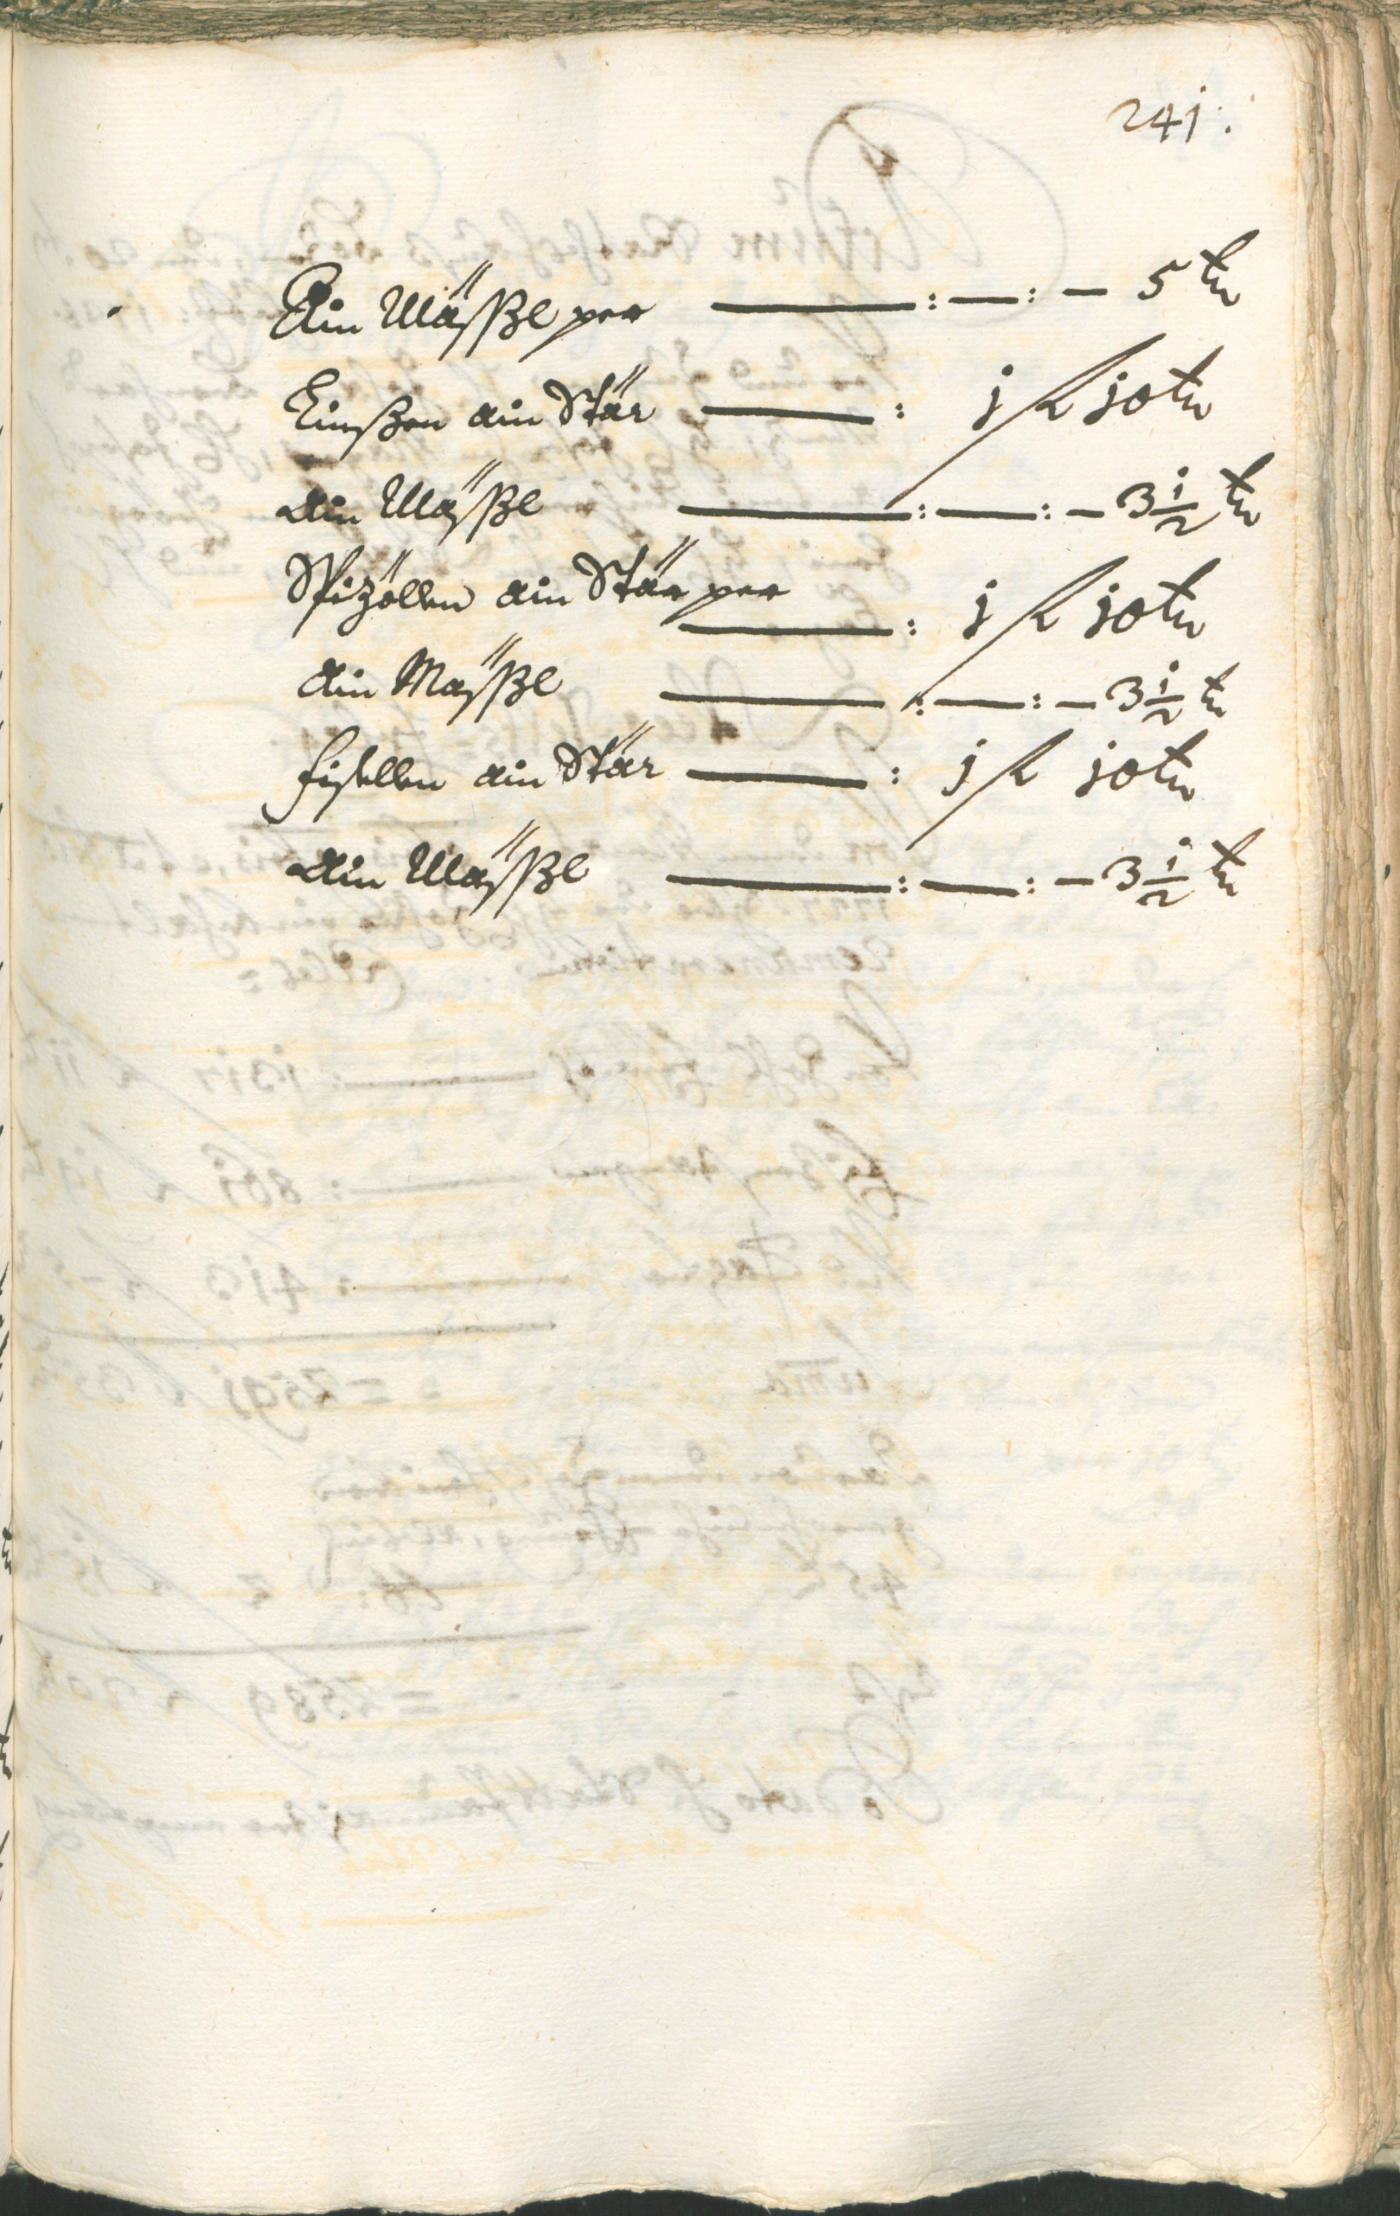 241.
Ain Mässle per — : — : — 5 kr
Linßen ain Stär — : 1 f 10 kr
ain Mässle — : — : — 3 1/2 kr
Spizöllen ain Stär per — : 1 f 10 kr
ain Mässle — : — : — 3 1/2 kr
fisellen ain Stär — : 1 f 10 kr
ain Mässle — : — : — 3 1/2 kr